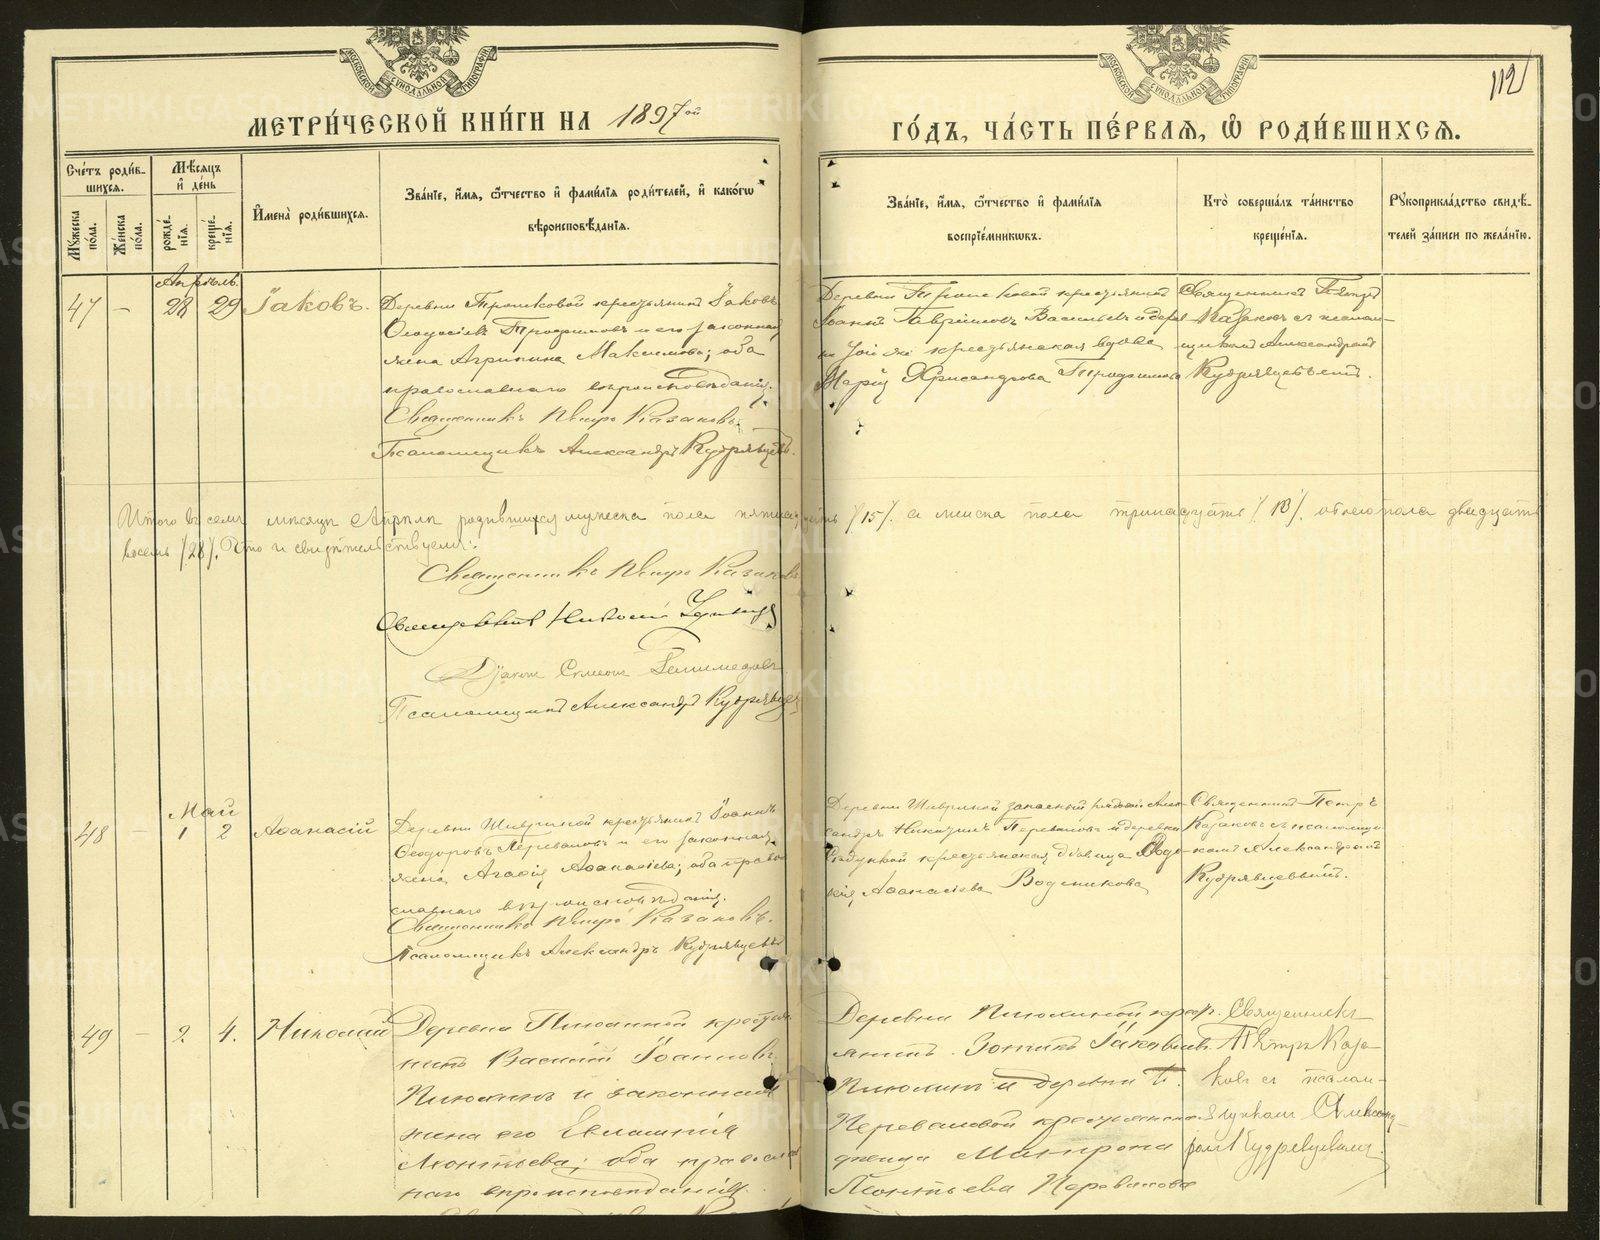 МОСКОВСКОЙ СѴНОДАЛЬНОЙ ТИПОГРАФІИ
МОСКОВСКОЙ СѴНОДАЛЬНОЙ ТИПОГРАФІИ
112
МЕТРИ́ЧЕСКОЙ КНИ́ГИ НА 1897ой
ГО́ДЪ, ЧА́СТЬ ПЕ́РВАѦ, Ѡ҆ РОДИ́ВШИХСѦ.
Сче́тъ роди́в-
шихся.
Мѣ́сяцъ
и҆ де́нь
Мꙋ́жеска по́ла.
Же́нска по́ла.
рожде́-нїѧ.
креще́-нїѧ.
И҆мена̀ роди́вшихсѧ.
Зва́нїе, и҆́мѧ, ѻ҆́тчество и҆ фами́лїѧ роди́телей, и҆ како́гѡ
вѣроисповѣ́данїѧ.
Зва́нїе, и҆́мѧ, ѻ҆́тчество и҆ фами́лїѧ
воспрїе́мникѡвъ.
Кто̀ соверша́лъ та́инство
креще́нїѧ.
Рꙋкоприкла́дство свидѣ́-
телей за́писи по жела́нїю.
Апрѣль
47 - 28 29 Іаковъ.
Деревни Трошковой крестьянинъ Іаковъ
Ѳеодосіевъ Трофимовъ и его законная
жена Агрипина Максимова; оба
православнаго вѣроисповѣданія.
Священникъ Петръ Казаковъ
Псаломщикъ Александръ Кудрявцевъ.
Деревни Трошковой крестьянинъ
Іоаннъ Гавріиловъ Васильевъ и дерев-
ни той же крестьянская вдова
Марія Хрисанфова Трофимова
Священникъ Петръ
Казаковъ съ псалом-
щикомъ Александромъ
Кудрявцевымъ.
Итого въ семъ мѣсяцѣ Апрѣлѣ родившихся мужеска пола пятнадцать /15/. а женска пола тринадцать /13/. обоего пола двадцать
восемь /28/. Что и свидѣтельствуемъ:
Священникъ Петръ Казаковъ
Священникъ Николай
Діаконъ Симеонъ
Псаломщикъ Александръ Кудрявцевъ
Май
48 - 1 2 Аѳанасій
Деревни Шавриной крестьянинъ Іоаннъ
Ѳеодоровъ Переваловъ и его законная
жена Агаѳія Аѳанасіева; оба право-
славнаго вѣроисповѣданія.
Священникъ Петръ Казаковъ.
Псаломщикъ Александръ Кудрявцевъ
Деревни Шавриной запасный рядовой Алек-
сандръ Никитинъ Переваловъ и деревни
крестьянская дѣвица Евдо-
кія Аѳанасіева Воденикова
Священникъ Петръ
Казаковъ съ псаломщи-
комъ Александромъ
Кудрявцевымъ.
49 - 2. 4. Николай
Деревни Пиюлиной крестья-
нинъ Василій Іоанновъ
Пиюлинъ и законная
жена его Евлампія
Леонтьева; оба православ-
наго вѣроисповѣданія.
Деревни Пиюлиной крест-
янинъ Зотикъ Іаковлевъ
Пиюлинъ и деревни П.
Переваловой крестьянская
дѣвица Матрона
Леонтьева Перевалова
Священникъ
Петръ Каза-
ковъ съ псалом-
щикомъ Александ-
ромъ Кудрявцевымъ.
METRIKI.GASO-URAL.RU